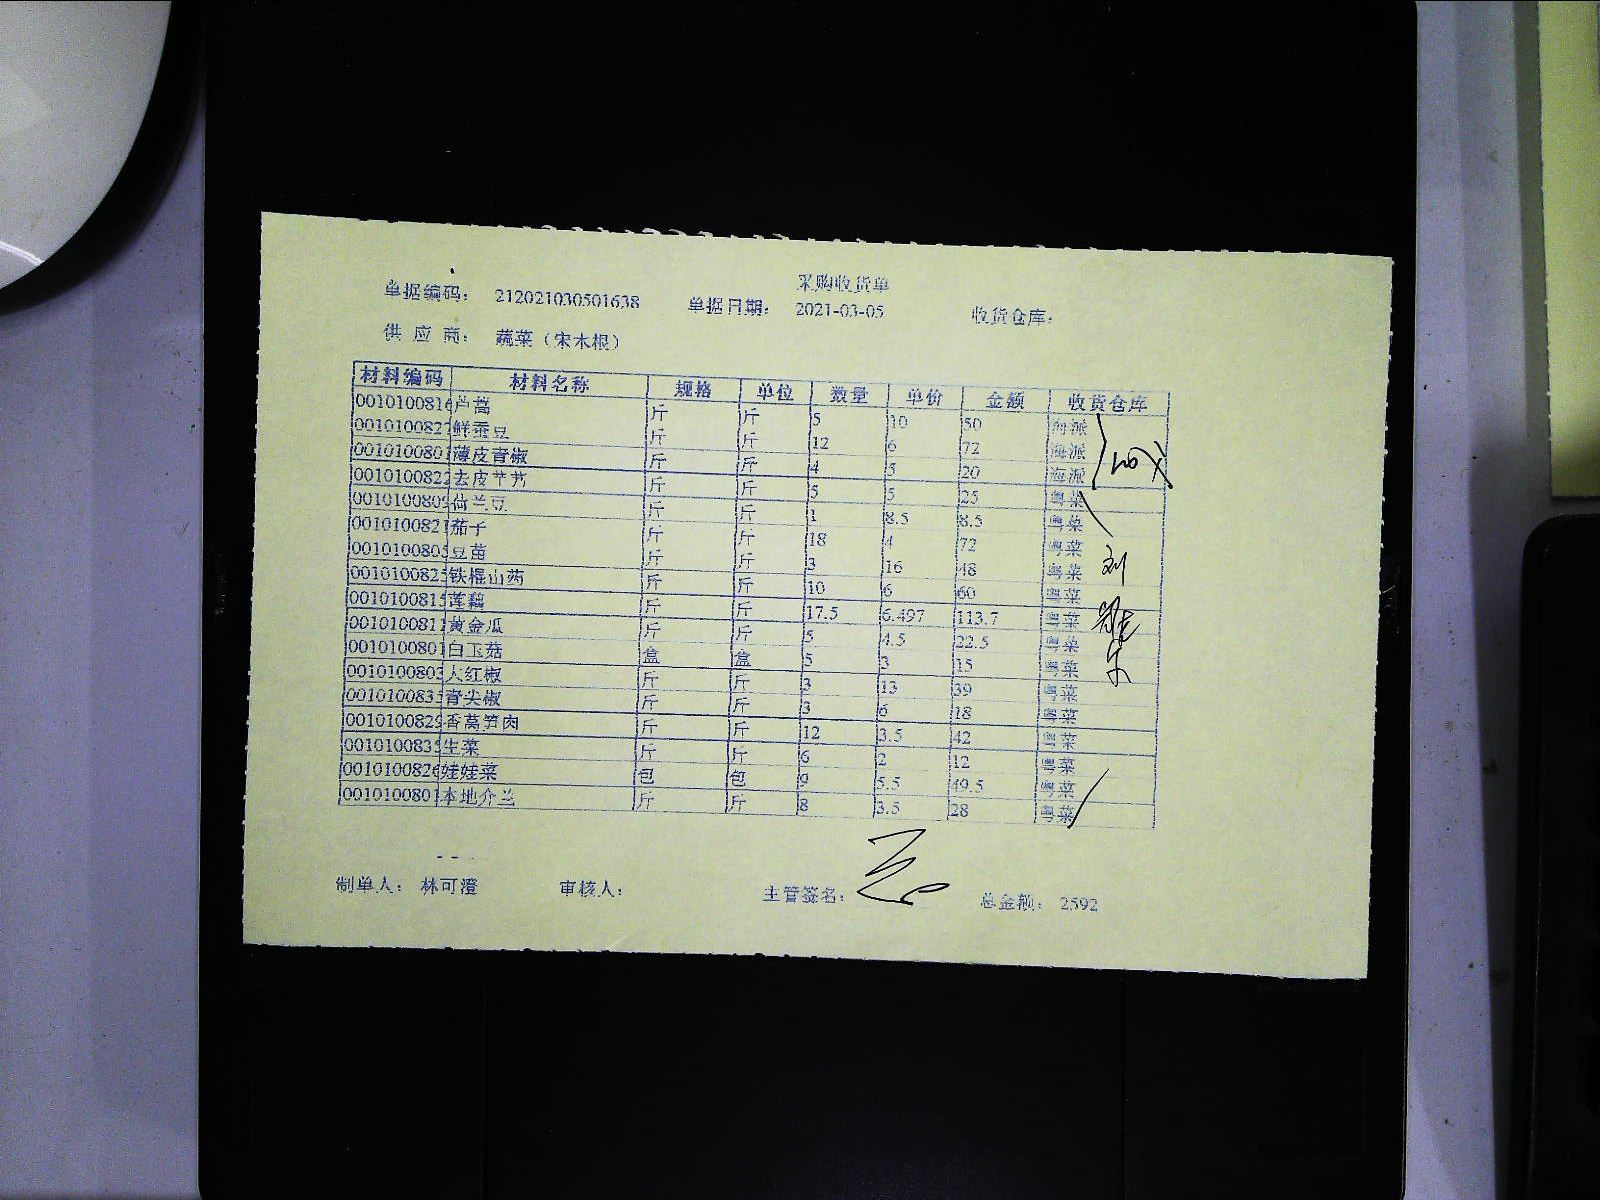 采购收货单
单据编码： 212021030501638 单据日期： 2021-03-05 收货仓库：
供 应 商： 蔬菜（宋木根）
材料编码 材料名称 规格 单位 数量 单价 金额 收货仓库
0010100816 芦蒿 斤 斤 5 10 50 海派
0010100822 鲜蚕豆 斤 斤 12 6 72 海派
0010100801 薄皮青椒 斤 斤 4 5 20 海派
0010100822 去皮芋艿 斤 斤 5 5 25 粤菜
0010100809 荷兰豆 斤 斤 1 8.5 8.5 粤菜
0010100821 茄子 斤 斤 18 4 72 粤菜
0010100805 豆苗 斤 斤 3 16 48 粤菜
0010100825 铁棍山药 斤 斤 10 6 60 粤菜
0010100815 莲藕 斤 斤 17.5 6.497 113.7 粤菜
0010100811 黄金瓜 斤 斤 5 4.5 22.5 粤菜
0010100801 白玉菇 盒 盒 5 3 15 粤菜
0010100803 大红椒 斤 斤 3 13 39 粤菜
0010100835 青尖椒 斤 斤 3 6 18 粤菜
0010100829 香莴笋肉 斤 斤 12 3.5 42 粤菜
0010100835 生菜 斤 斤 6 2 12 粤菜
0010100826 娃娃菜 包 包 9 5.5 49.5 粤菜
0010100801 本地介兰 斤 斤 8 3.5 28 粤菜
制单人： 林可澄 审核人： 主管签名： 总金额： 2592